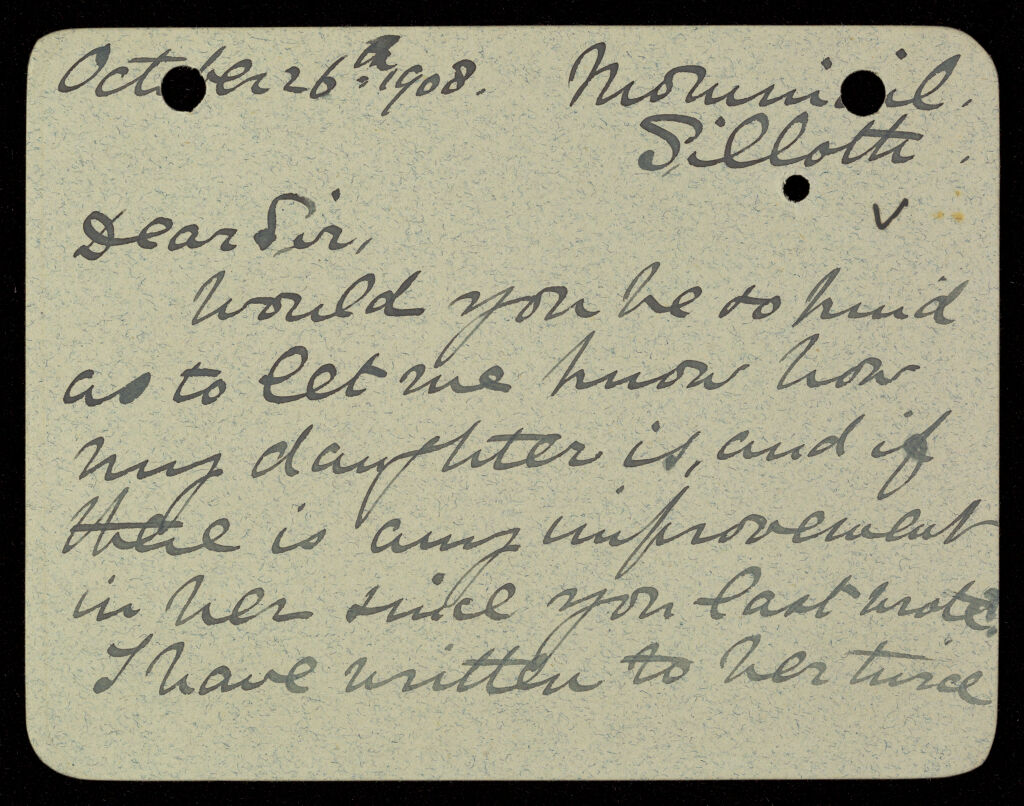 October 26th 1908.
Silloth.
Dear Sir,
Would you be so kind
as to let me know how
my daughter is, and if
there is any improvement
in her since you last wrote.
I have written to her twice